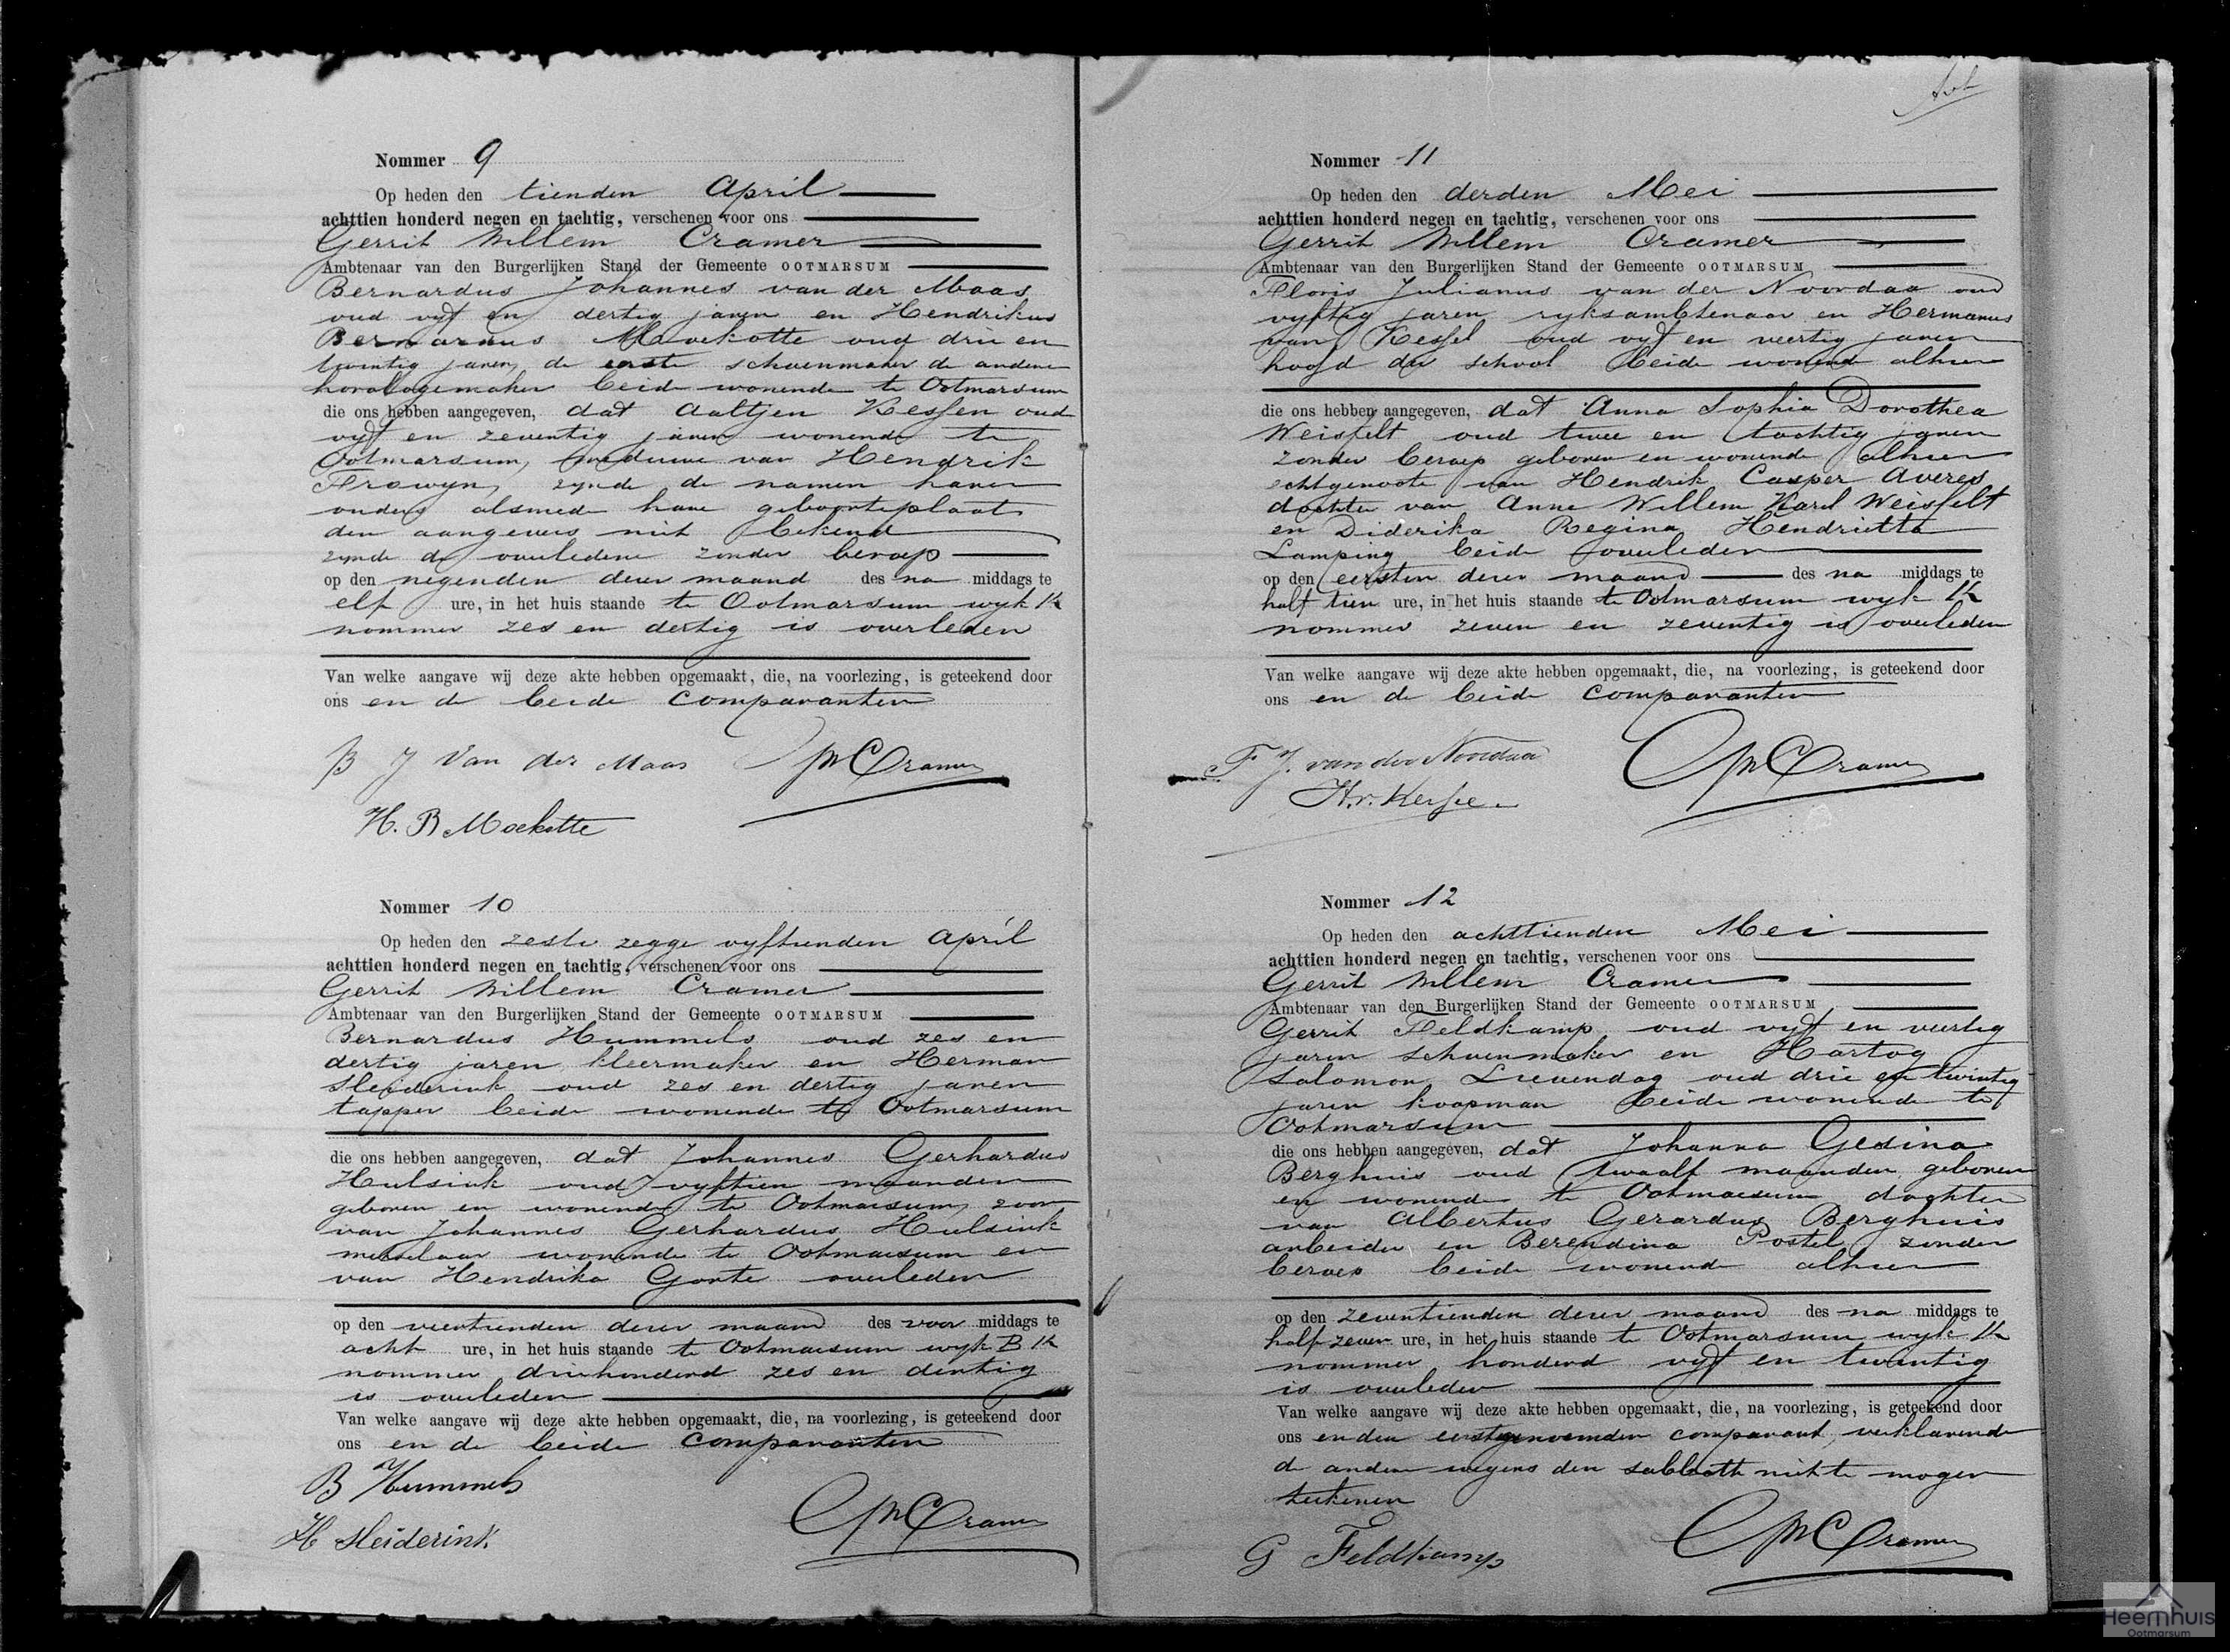 Nommer 9
Op heden den tienden April
achttien honderd negen en tachtig, verschenen voor ons
Gerrit Willem Cramer
Ambtenaar van den Burgerlijken Stand der Gemeente OOTMARSUM
Bernardus Johannes van der Maas
oud vyf en dertig jaren en Hendrikus
Bernardus Moekotte oud drie en
twintig jaren, de eerste schoenmaker de andere
horologemaker beide wonende te Ootmarsum
die ons hebben aangegeven, dat Aaltjen Kessen oud
vyf en zeventig jaren wonende te
Ootmarsum, weduwe van Hendrik
Frowyn, zynde de namen harer
ouders alsmede hare geboorteplaats
den aangevers niet bekend
zynde de overledene zonder beroep
op den negenden dezer maand des na middags te
elf ure, in het huis staande te Ootmarsum wyk K
nommer zes en dertig is overleden
Van welke aangave wij deze akte hebben opgemaakt, die, na voorlezing, is geteekend door
ons en de beide comparanten
B J Van der Maas GWCramer
H. B Moekotte
Nommer 10
Op heden den zeste zegge vyftienden April
achttien honderd negen en tachtig, verschenen voor ons
Gerrit Willem Cramer
Ambtenaar van den Burgerlijken Stand der Gemeente OOTMARSUM
Bernardus Hummels oud zes en
dertig jaren kleermaker en Herman
Sleiderink oud zes en dertig jaren
tapper beide wonende te Ootmarsum
die ons hebben aangegeven, dat Johannes Gerhardus
Hulsink oud vyftien maanden
geboren en wonende te Ootmarsum, zoon
van Johannes Gerhardus Hulsink
metselaar wonende te Ootmarsum en
van Hendrika Gorte overleden
op den veertienden dezer maand des voor middags te
acht ure, in het huis staande te Ootmarsum wyk B K
nommer driehonderd zes en dertig
is overleden
Van welke aangave wij deze akte hebben opgemaakt, die, na voorlezing, is geteekend door
ons en de beide comparanten
B Hummels
H Sleiderink GWCramer
Nommer 11
Op heden den derden Mei
achttien honderd negen en tachtig, verschenen voor ons
Gerrit Willem Cramer
Ambtenaar van den Burgerlijken Stand der Gemeente OOTMARSUM
Floris Julianus van der Noordaa oud
vyftig jaren ryksambtenaar en Hermanus
van Kessel oud vyf en veertig jaren
hoofd der school beide wonend alhier
die ons hebben aangegeven, dat Anna Sophia Dorothea
Weisfelt oud twee en tachtig jaren
zonder beroep geboren en wonende alhier
echtgenoote van Hendrik Casper Averes
dochter van Anne Willem Karel Weisfelt
en Diderika Regina Hendrietta
Lamping beide overleden
op den eersten dezer maand des na middags te
half tien ure, in het huis staande te Ootmarsum wyk K
nommer zeven en zeventig is overleden
Van welke aangave wij deze akte hebben opgemaakt, die, na voorlezing, is geteekend door
ons en de beide comparanten
F J. van der Noordaa GWCramer
H. v. Kessel
Nommer 12
Op heden den achttienden Mei
achttien honderd negen en tachtig, verschenen voor ons
Gerrit Willem Cramer
Ambtenaar van den Burgerlijken Stand der Gemeente OOTMARSUM
Gerrit Feldkamp oud vyf en veertig
jaren schoenmaker en Hartog
Salomon Lievendag oud drie en twintig
jaren koopman beide wonende te
Ootmarsum
die ons hebben aangegeven, dat Johanna Gesina
Berghuis oud twaalf maanden geboren
en wonende te Ootmarsum dochter
van Albertus Gerardus Berghuis
arbeider en Berendina Postel zonder
beroep beide wonende alhier
op den zeventienden dezer maand des na middags te
half zeven ure, in het huis staande te Ootmarsum wyk K
nommer honderd vyf en twintig
is overleden
Van welke aangave wij deze akte hebben opgemaakt, die, na voorlezing, is geteekend door
ons en den eerstgenoemden comparant, verklarende
de andere wegens den sabbath niet te mogen
teekenen
G Feldkamp GWCramer
Heemhuis
Ootmarsum